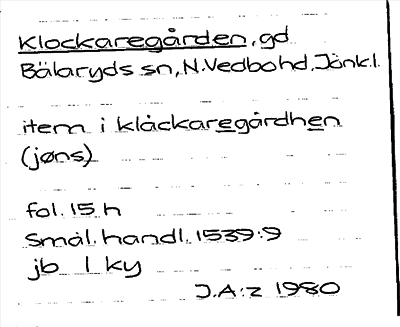 Klockaregården, gd
Bälaryds sn, N.Vedbohd, Jönk.l.
item i klåckaregårdhen
(jøns)
fol. 15 h
Smål. handl. 1539:9
jb 1 ky
J.A:z 1980